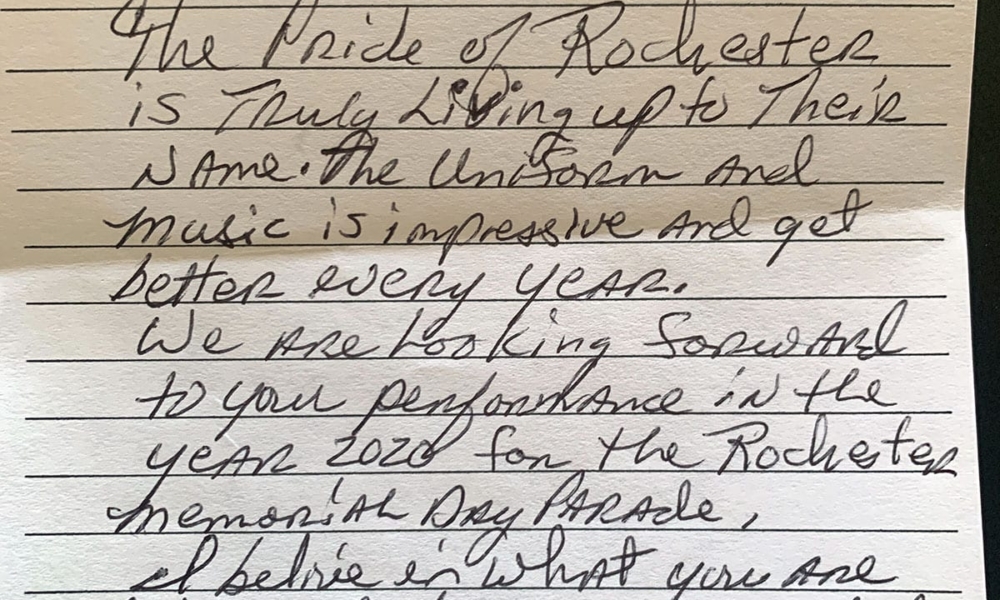 The Pride of Rochester
is Truly Living up to Their
Name. The Uniform and
music is impressive and get
better every year.
We are Looking forward
to your performance in the
year 2020 for the Rochester
memorial Day Parade,
I belivie in what you are